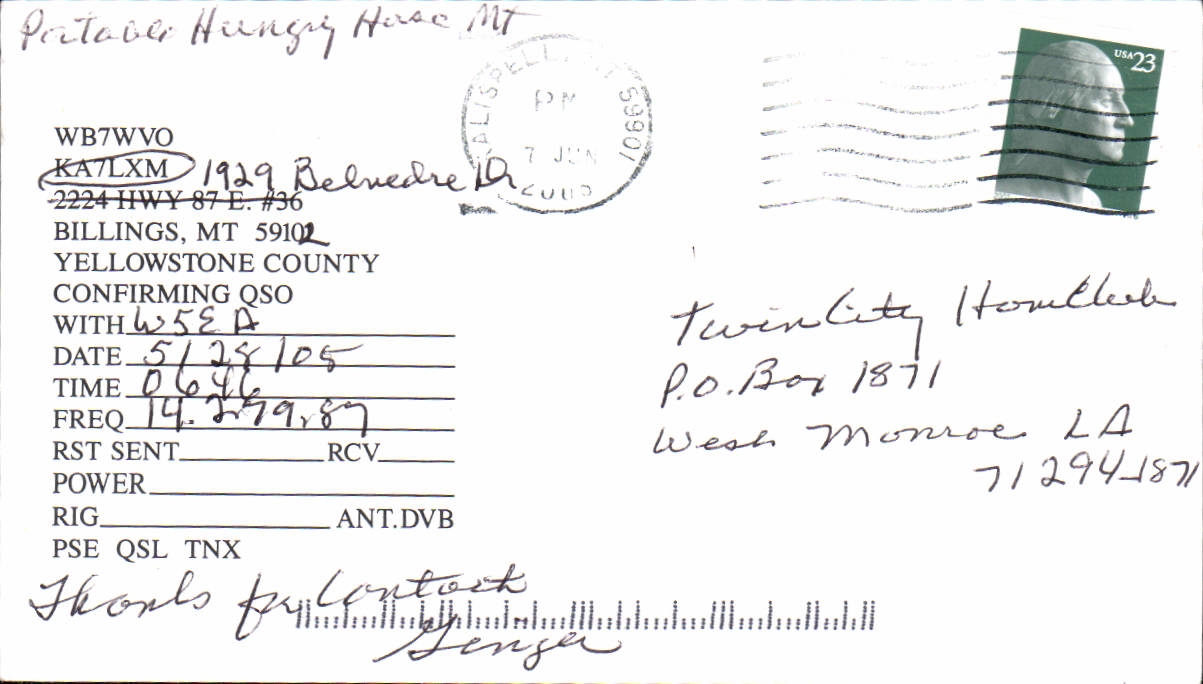 Portable Hungry Horse MT
KALISPELL, MT 59901
PM
7 JUN
2005
USA 23
WB7WVO
KA7LXM 1929 Belvedre Dr
2224 HWY 87 E. #36
BILLINGS, MT 59102
YELLOWSTONE COUNTY
CONFIRMING QSO
WITH W5EA
DATE 5/28/05
TIME 0646
FREQ 14.279.87
RST SENT RCV
POWER
RIG ANT. DVB
PSE QSL TNX
Thanks for Contact
Ginger
Twin City Ham Club
P.O. Box 1871
West Monroe LA
71294-1871